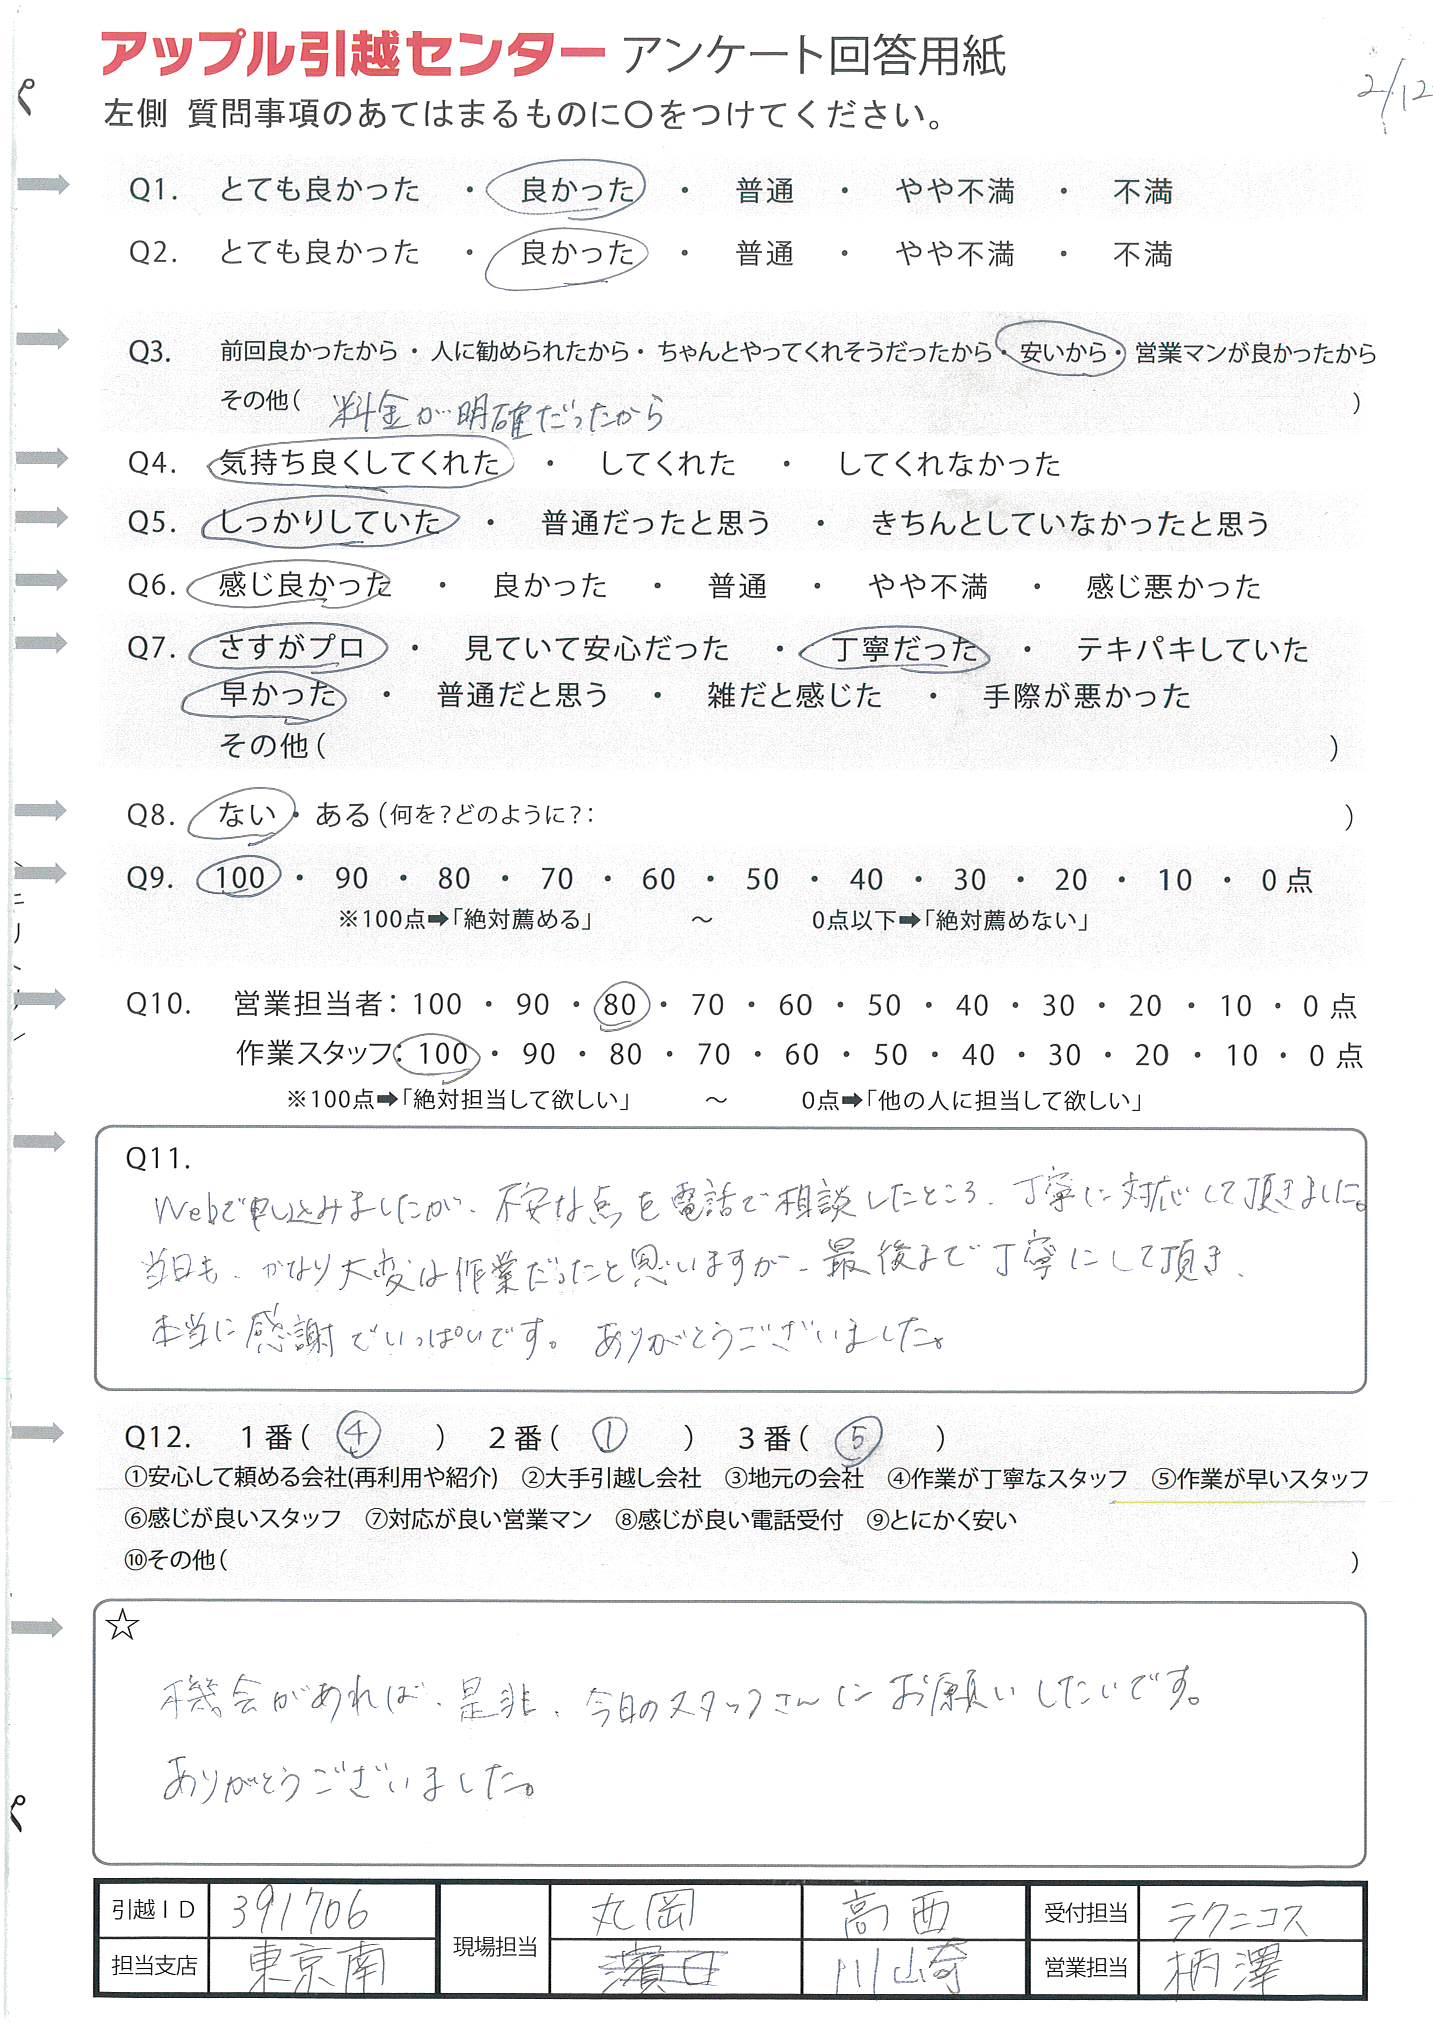 アップル引越センター アンケート回答用紙
2/12
左側 質問事項のあてはまるものに〇をつけてください。
Q1. とても良かった ・ 良かった ・ 普通 ・ やや不満 ・ 不満
Q2. とても良かった ・ 良かった ・ 普通 ・ やや不満 ・ 不満
Q3. 前回良かったから・人に勧められたから・ちゃんとやってくれそうだったから・安いから・営業マンが良かったから
その他( 料金が明確だったから )
Q4. 気持ち良くしてくれた ・ してくれた ・ してくれなかった
Q5. しっかりしていた ・ 普通だったと思う ・ きちんとしていなかったと思う
Q6. 感じ良かった ・ 良かった ・ 普通 ・ やや不満 ・ 感じ悪かった
Q7. さすがプロ ・ 見ていて安心だった ・ 丁寧だった ・ テキパキしていた
早かった ・ 普通だと思う ・ 雑だと感じた ・ 手際が悪かった
その他( )
Q8. ない ・ ある(何を?どのように?: )
Q9. 100 ・ 90 ・ 80 ・ 70 ・ 60 ・ 50 ・ 40 ・ 30 ・ 20 ・ 10 ・ 0点
※100点➡「絶対薦める」 ～ 0点以下➡「絶対薦めない」
Q10. 営業担当者: 100 ・ 90 ・ 80 ・ 70 ・ 60 ・ 50 ・ 40 ・ 30 ・ 20 ・ 10 ・ 0 点
作業スタッフ: 100 ・ 90 ・ 80 ・ 70 ・ 60 ・ 50 ・ 40 ・ 30 ・ 20 ・ 10 ・ 0 点
※100点➡「絶対担当して欲しい」 ～ 0点➡「他の人に担当して欲しい」
Q11.
Webで申し込みましたが、不安な点を電話で相談したところ、丁寧に対応して頂きました。
当日も、かなり大変な作業だったと思いますが、最後まで丁寧にして頂き、
本当に感謝でいっぱいです。ありがとうございました。
Q12. 1番( ④ ) 2番( ① ) 3番( ⑤ )
①安心して頼める会社(再利用や紹介) ②大手引越し会社 ③地元の会社 ④作業が丁寧なスタッフ ⑤作業が早いスタッフ
⑥感じが良いスタッフ ⑦対応が良い営業マン ⑧感じが良い電話受付 ⑨とにかく安い
⑩その他( )
☆
機会があれば、是非、今日のスタッフさんにお願いしたいです。
ありがとうございました。
引越ID 391706 現場担当 丸岡 高西 受付担当 ラクニコス
担当支店 東京南 濱田 川崎 営業担当 柄澤